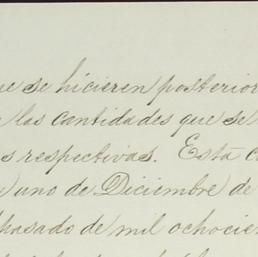 se hicieren posterior
las cantidades que se
respectivas. Esta
uno de Diciembre de
pasado de mil ochocie